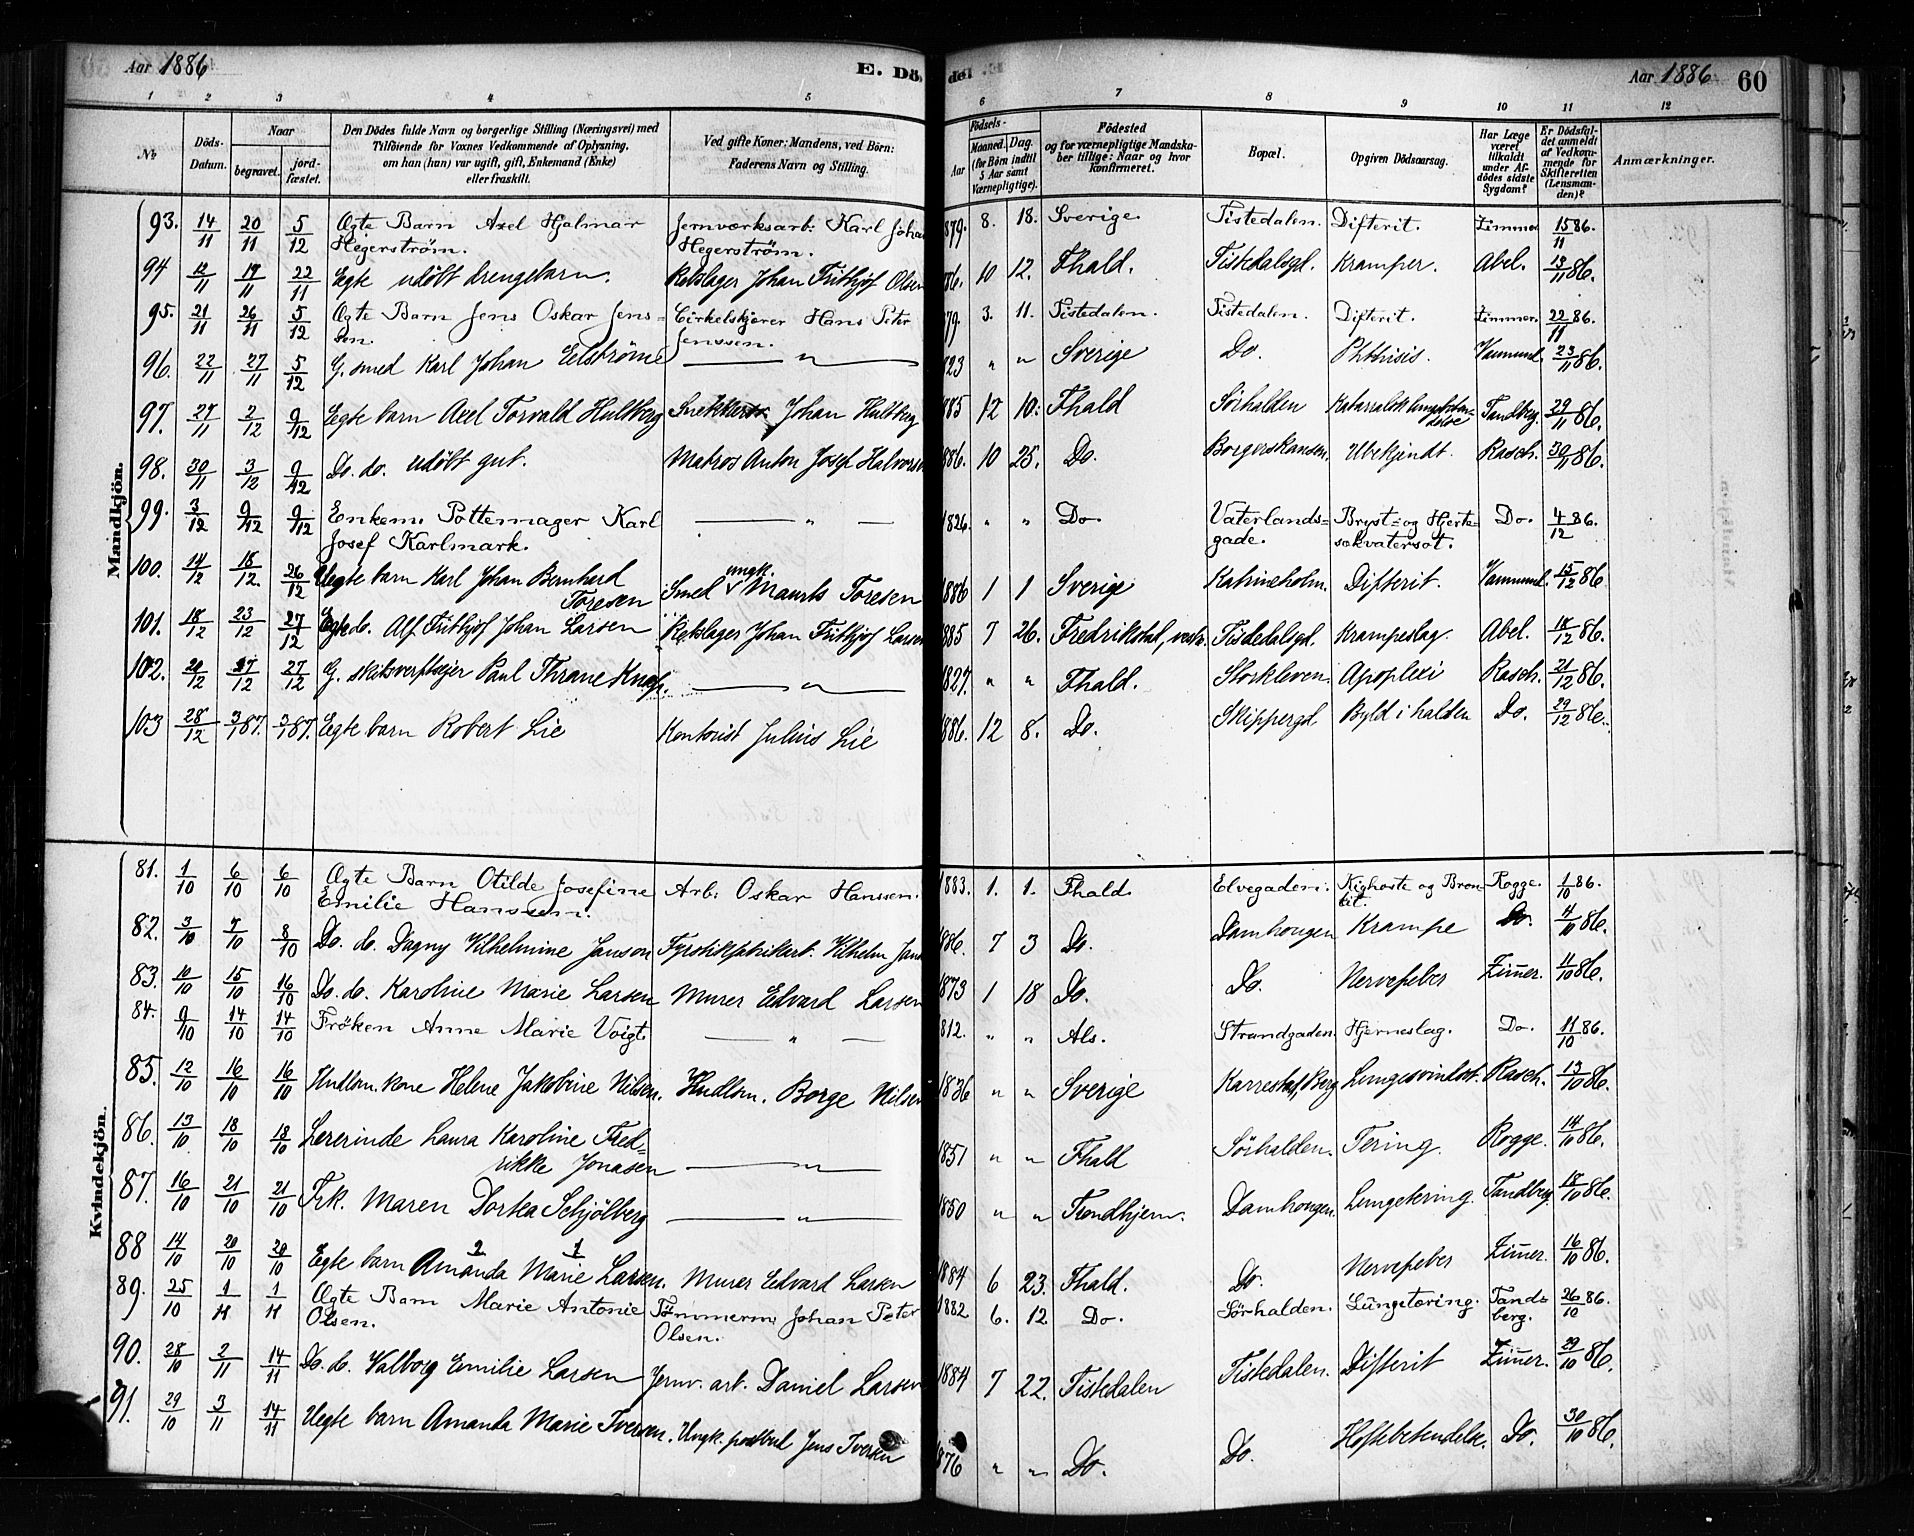 Aar 1886
E. Dö
del
Aar 1886
60
1 2 3 4 5 6 7 8 9 10 11 12
№
Döds-Datum.
Naar
begravet.
jord-fæstet.
Den Dödes fulde Navn og borgerlige Stilling (Næringsvei) med
Tilföiende for Voxnes Vedkommende af Oplysning,
om han (hun) var ugift, gift, Enkemand (Enke)
eller fraskilt.
Ved gifte Koner: Mandens, ved Börn:
Faderens Navn og Stilling.
Födsels-
Aar
Maaned. Dag.
(for Börn indtil
5 Aar samt
Værnepligtige).
Födested
og for værnepligtige Mandska-
ber tillige: Naar og hvor
konfirmeret.
Bopæl.
Opgiven Dödsaarsag.
Har Læge
været
tilkaldt
under Af-
dödes sidste
Sygdom?
Er Dödsfal-
det anmeldt
af Vedkom-
mende for
Skifteretten
(Lensman-
den)?
Anmærkninger.
Mandkjön.
93. 14/11 20/11 5/12 Ægte Barn Axel Hjalmar Jernværksarb: Karl Johan 879. 8. 18. Sverige. Tistedalen. Difterit. Zimmer 15/11 86.
Hegerström. Hegerström.
94 12/11 17/11 22/11 Egte udöbt drengebarn. Rebslager Johan Frithjof Olsen 86. 10 12. Fhald. Tistedalsgd. Kramper. Abel. 13/11 86.
95. 21/11 26/11 5/12 Ægte Barn Jens Oskar Jens= Cirkelskjærer Hans Peter 79. 3. 11. Tistedalen. Tistedalen. Difterit. Zimmer. 22/11 86.
sen. Jenssen.
96. 22/11 27/11 5/12 G. smed Karl Johan Eelström — " — 823 " " Sverige Do. Phthisis. Vammund. 23/11 86.
97. 27/11 2/12 9/12 Egte barn Axel Torvald Hultberg Johan Hultberg 885 12 10. Fhald Sörhalden Katarralsk Tandberg. 29/11 86.
98. 30/11 3/12 9/12 Do. do. udöbt gut. Matros Anton Josef Halvorsen 886. 10 25. Do. Borgerskansen. Ubekjendt. Rasch. 30/11 86.
99. 3/12 9/12 9/12 Enkem. Pottemager Karl — " — 1826. " " Do. Vaterlands= Bryst= og Hjerte= Do. 4/12 86.
Josef Karlmark. gade. sækvatersot.
100. 14/12 18/12. 26/12 Uegte barn Karl Johan Bernhard Smed ungk. Maurits Toresen 1886 1 1 Sverige Katrineholm. Difterit. Vammund. 15/12 86
Toresen
101. 18/12 23/12 27/12 Egte do. Alf Frithjof Johan Larsen Rebslager Johan Frithjof Larsen 885 7 26. Fredrikstad, Tistedalsgd. Krampeslag. Abel. 18/12 86.
102. 20/12 27/12 27/12 G. skibsverftsejer Paul Thrane — " — 1827. " " Fhald. Storkleven. Apoplexi Rasch. 21/12 86.
103 28/12 3/1 87. 3/1 87. Egte barn Robert Lie Kontorist Julius Lie 1886. 12 8. Do. Skippergd. Byld i halden Do. 29/12 86.
Kvindekjön.
81. 1/10 6/10 6/10 Ægte Barn Otilde Josefine Arb: Oskar Hanssen. 1883. 1. 1. Fhald. Elvegaden. Kighoste og Bron Rogge. 1/10 86.
Emilie Hanssen. kit.
82. 3/10 7/10 8/10 Do. do. Dagny Vilhelmine Janson Fyrstikfabrikarb. Vilhelm Jans 1886. 7 3 Do. Damhougen Krampe Do. 4/10 86.
83. 10/10 15/10 16/10 Do. do. Karoline Marie Larsen Murer Edvard Larsen 1873 1 18 Do. Do. Nervefeber Zimer. 11/10 86.
84. 9/10 14/10 14/10 Fröken Anne Marie Voigt. — " — 812. " " Als. Strandgaden. Hjerneslag. Do. 11/10 86.
85. 12/10 16/10 16/10 Hndlsm. kone Helene Jakobine Nilsen. Hndlsm. Borge Nilsen 1836 " " Sverige Karrestad, Berg Rasch. 13/10 86.
86. 13/10 18/10 18/10 Lererinde Laura Karoline Fred= — " — 1851 " " Fhald Sörhalden. Tering. Rogge. 14/10 86.
rikke Jonasen
87. 16/10 21/10 21/10 Frk. Maren Dorka Schjölberg — " — 1850 " " Trondhjem. Damhougen. Lungetering. Tandberg. 18/10 86.
88 14/10 20/10 20/10 Egte barn 2 Amanda 1 Marie Larsen. Murer Edvard Larsen 1884 6 23. Fhald. Do. Nervefeber Zimer. 16/10 86.
89. 25/10 1/11 1/11 Ægte Barn Marie Antonie Tömmerm. Johan Peter 1882 6. 12 Do. Sörhalden. Lungetæring. Tand= 26/10 86.
Olsen. Olsen. berg.
90. 28/10 2/11 14/11 Do. do. Valborg Emilie Larsen Jernv. arb. Daniel Larsen 1884 7 22. Tistedalen Tistedalen. Difterit Zimer. 29/10 86.
91. 29/10 3/11 14/11 Uegte barn Amanda Marie Iversen. Ungk. postbud Jens Iversen 876 " " Do. Do. Hoftebetendelse. Do. 30/10 86.